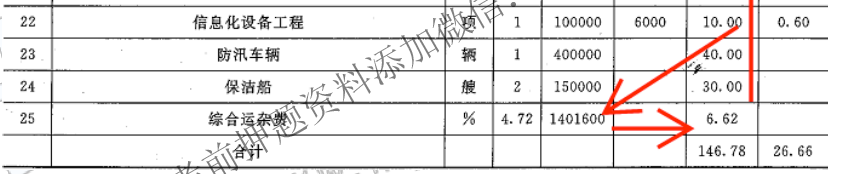 22 信息化设备工程 项 1 100000 6000 10.00 0.60
23 防汛车辆 辆 1 400000 40.00
24 保洁船 艘 2 150000 30.00
25 综合运杂费 % 4.72 1401600 6.62
合计 146.78 26.66
考前押题资料添加微信: